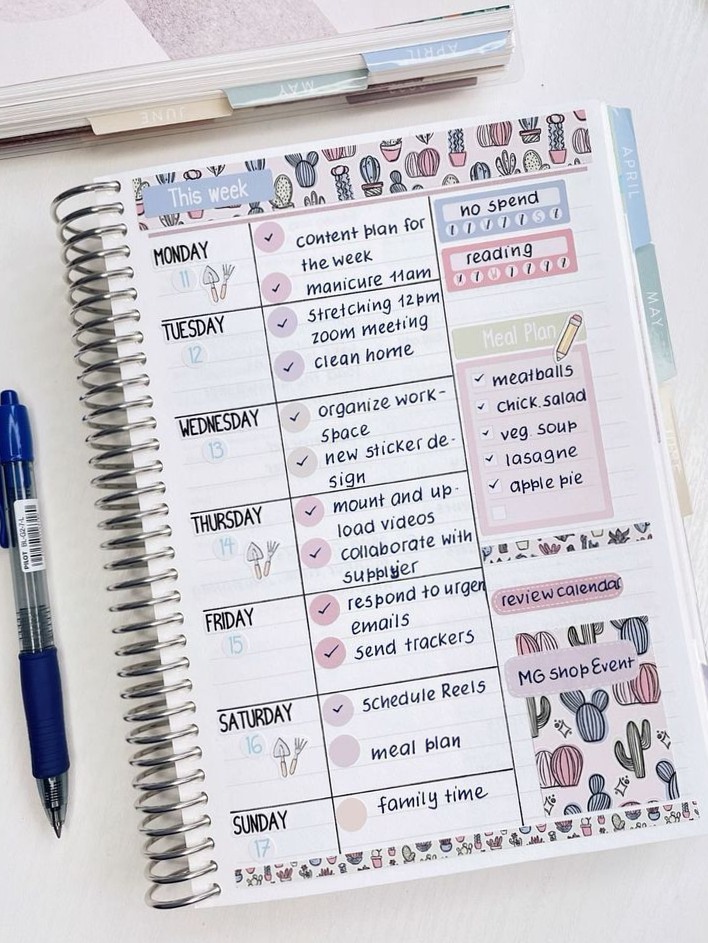 APRIL
MAY
JUNE
This week
MONDAY
11
content plan for
the week
manicure 11am
TUESDAY
12
stretching 12pm
zoom meeting
clean home
WEDNESDAY
13
organize work-
space
new sticker de-
sign
THURSDAY
14
mount and up-
load videos
collaborate with
supplyer
FRIDAY
15
respond to urgen
emails
send trackers
SATURDAY
16
schedule Reels
meal plan
SUNDAY
17
family time
no spend
reading
Meal Plan
meatballs
chick.salad
veg. soup
lasagne
apple pie
review calendar
MG shop Event
APRIL
MAY
JUNE
PILOT BL-G2-7-L